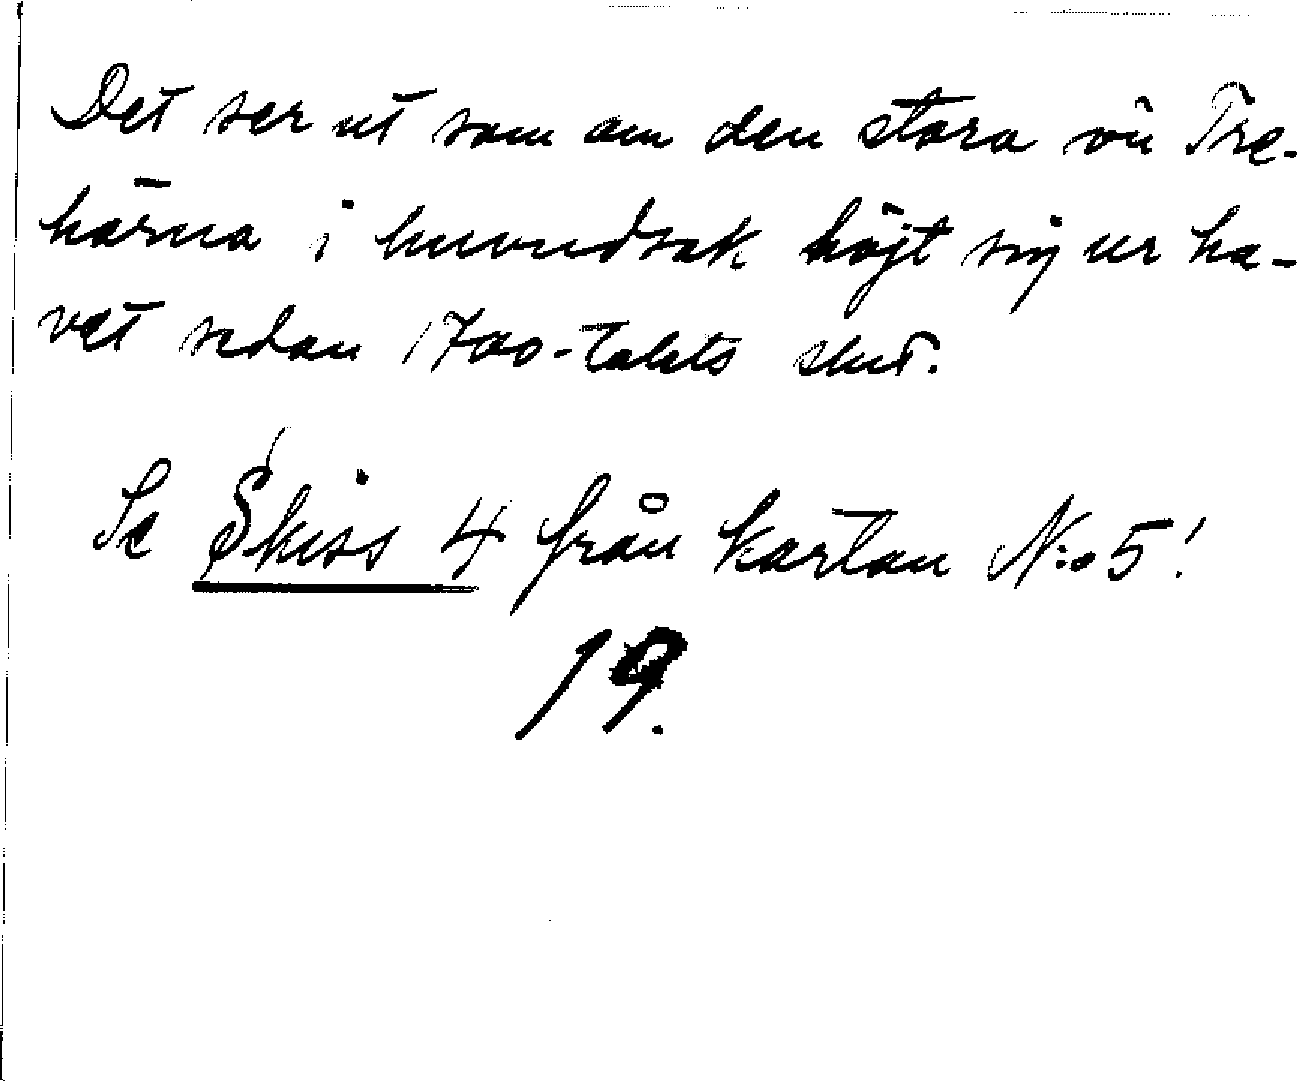 Det ser ut som om den stora ön Tre-
härna i huvudsak höjt sig ur ha-
vet sedan 1700-talets slut.
Se Skiss 4 från kartan N:o 5!
19.